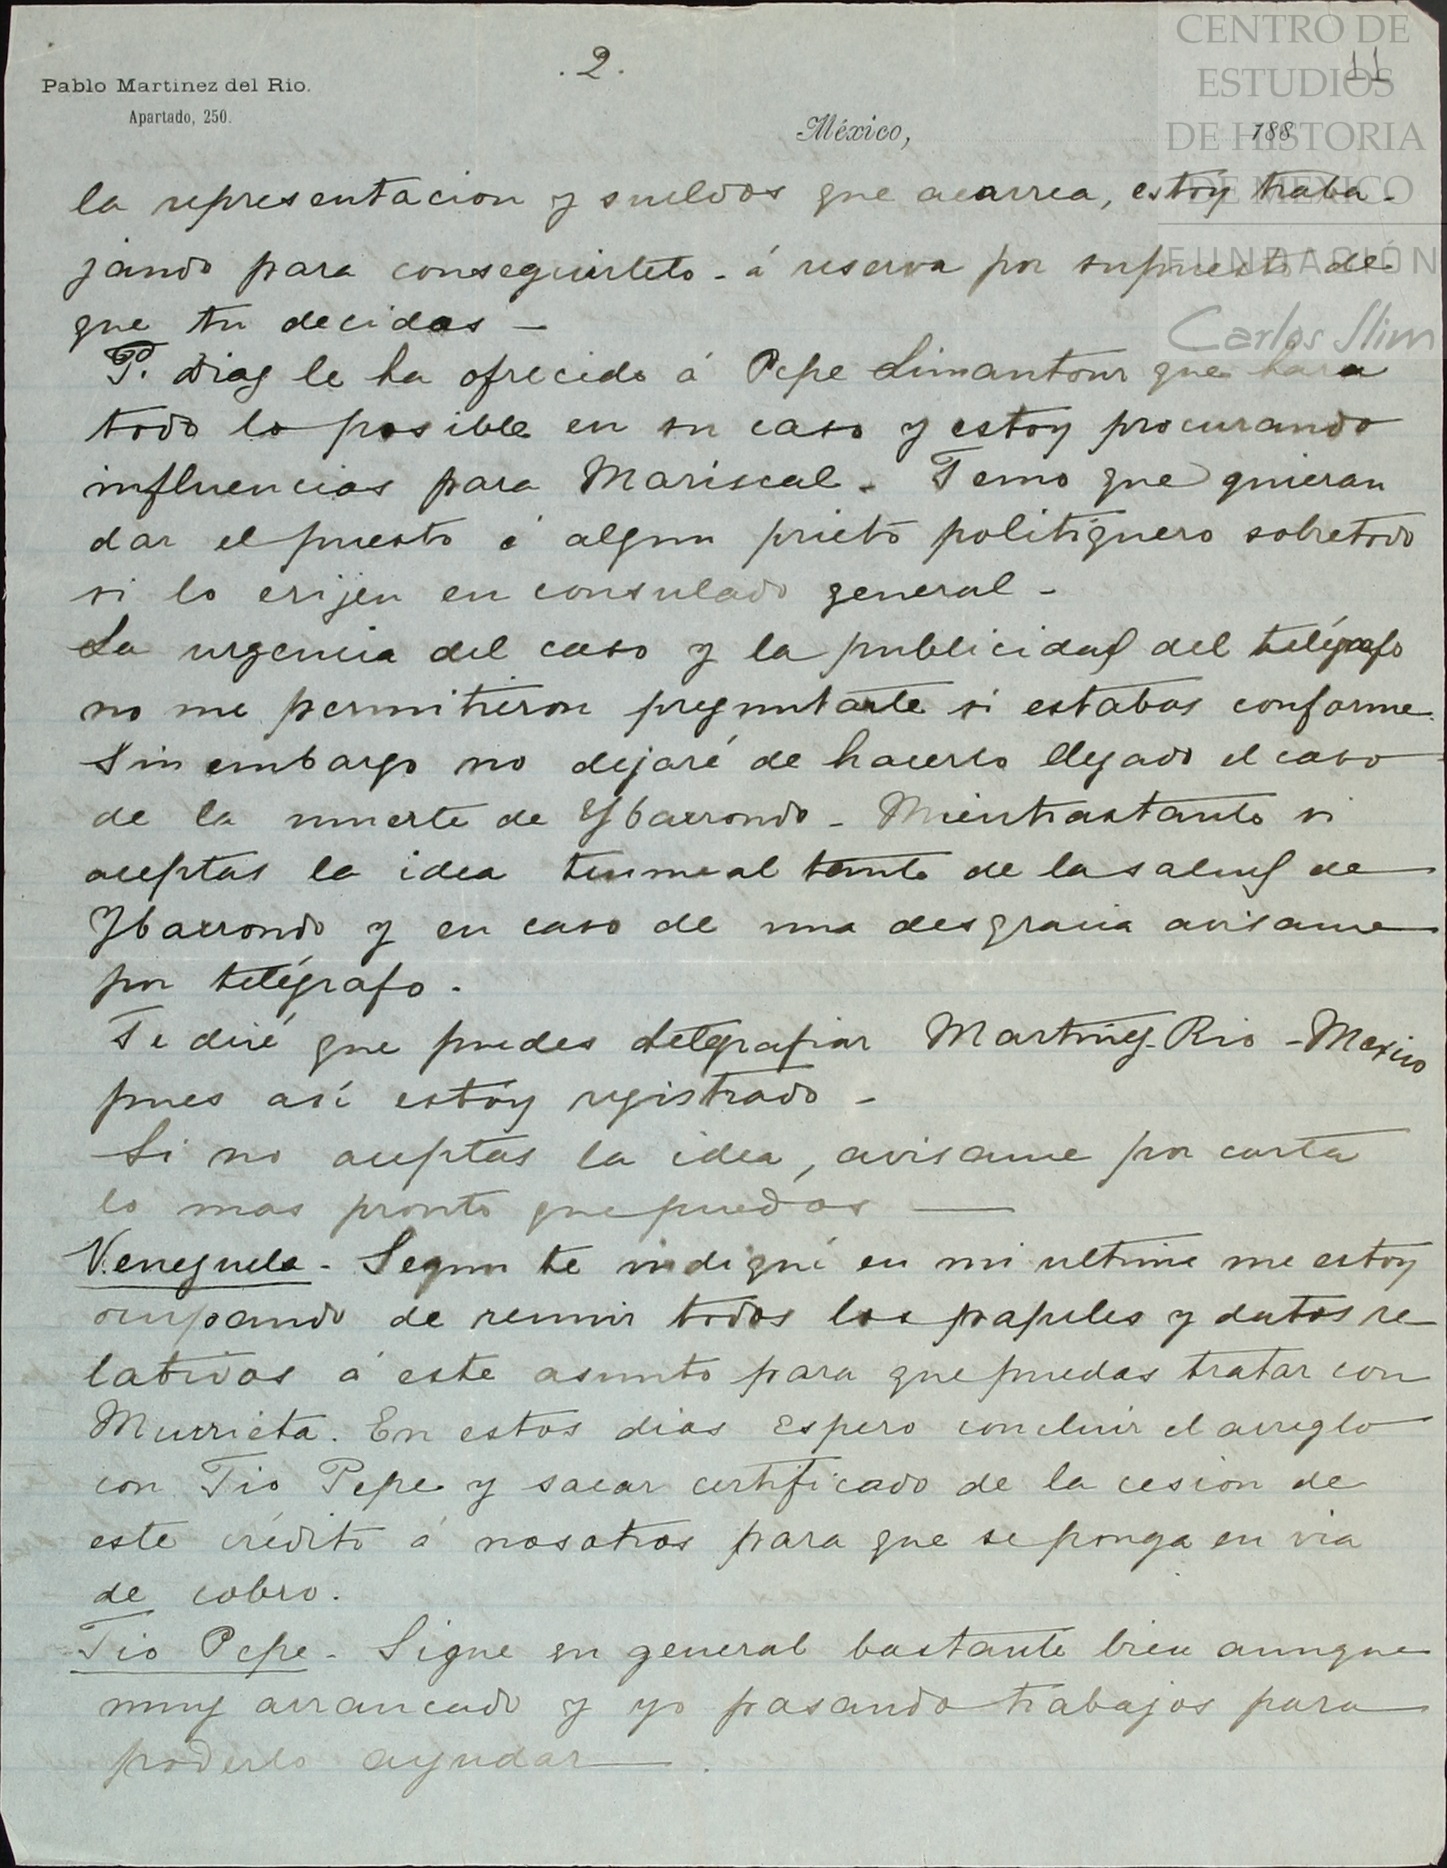 . 2 .
11
Pablo Martinez del Rio.
Apartado, 250.
México, 188
CENTRO DE
ESTUDIOS
DE HISTORIA
DE MEXICO
FUNDACIÓN
Carlos Slim
la representacion y sueldos que acarrea, estóy traba-
jando para conseguirteto - á reserva por supuesto de
que tu decidas —
P. Diaz le ha ofrecido á Pepe Limantour que hara
todo lo posible en su caso y estoy procurando
influencias para Mariscal - Temo que quieran
dar el puesto á algun prieto politiquero sobretodo
si lo erijen en consulado general -
La urgencia del caso y la publicidad del telégrafo
no me permitieron preguntarte si estabas conforme.
Sin embargo no dejaré de hacerlo llegado el caso
de la muerte de Ybarrondo - Mientrastanto si
aceptas la idea tenme al tanto de la salud de
Ybarrondo y en caso de una desgracia avisame
por telégrafo.
Te diré que puedes telegrafiar Martinez-Rio - Mexico
pues así estóy registrado -
Si no aceptas la idea, avisame por carta
lo mas pronto que puedas —
Venezuela - Segun te indiqué en mi ultima me estoy
ocupando de reunir todos los papeles y datos re-
lativos á este asunto para que puedas tratar con
Murrieta. En estos dias espero concluir el arreglo
con Tio Pepe y sacar certificado de la cesion de
este crédito á nosotros para que se ponga en via
de cobro.
Tio Pepe - Sigue en general bastante bien aunque
muy arrancado y yo pasando trabajos para
poderlo ayudar — .